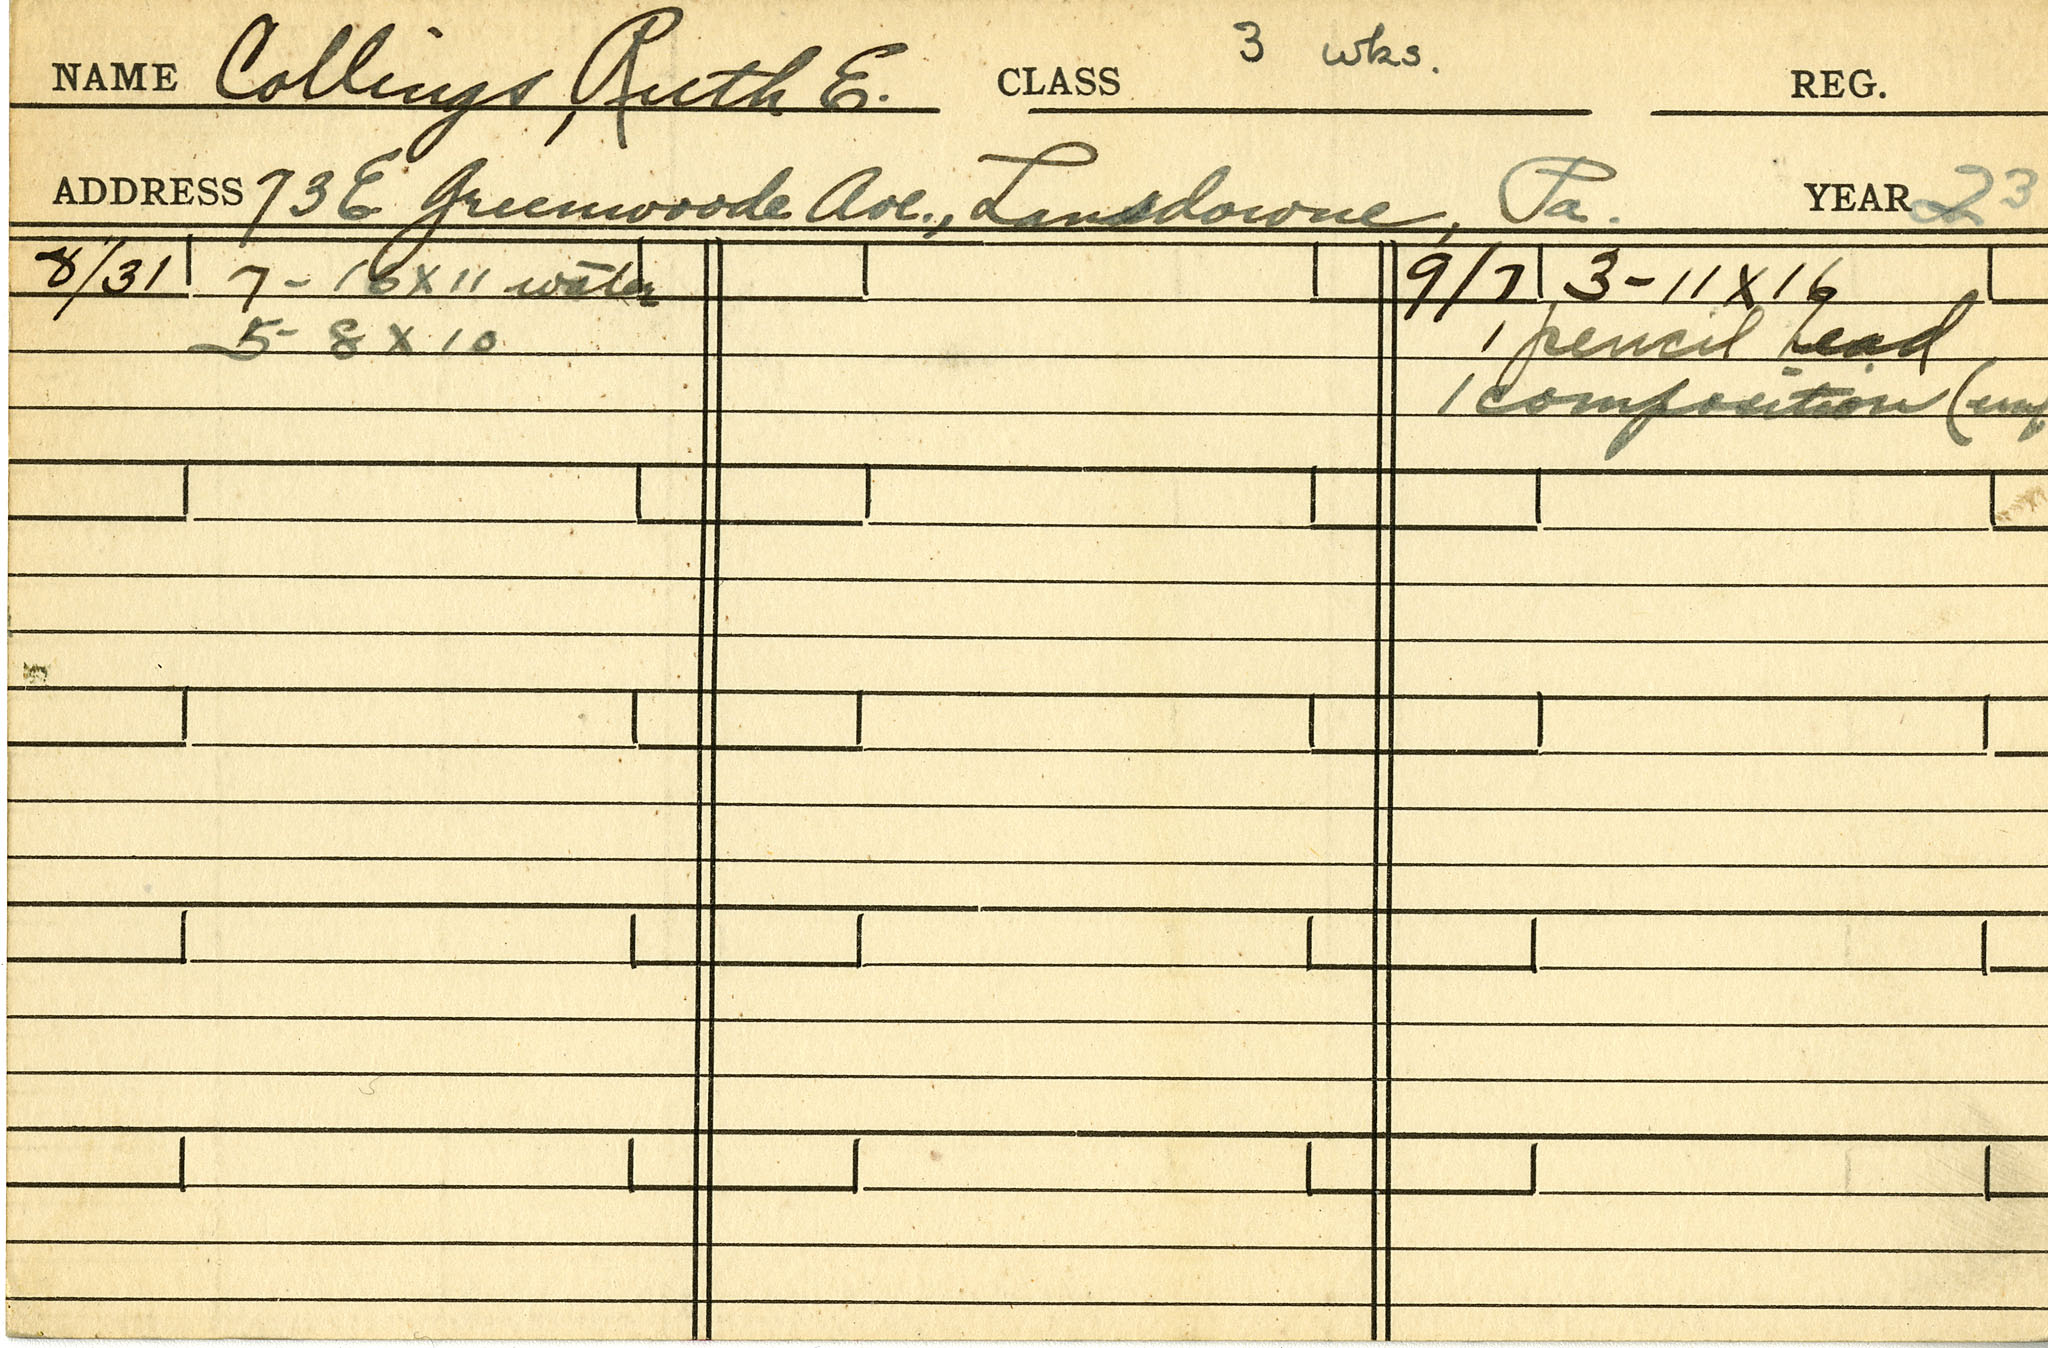 NAME Collings, Ruth E. CLASS 3 wks. REG.
ADDRESS 73 E Greenwoode Ave., Lansdowne, Pa. YEAR 23
8/31 7 - 16 x 11 water 9/7 3 - 11 x 16
5 - 8 x 10 1 pencil head
1 composition